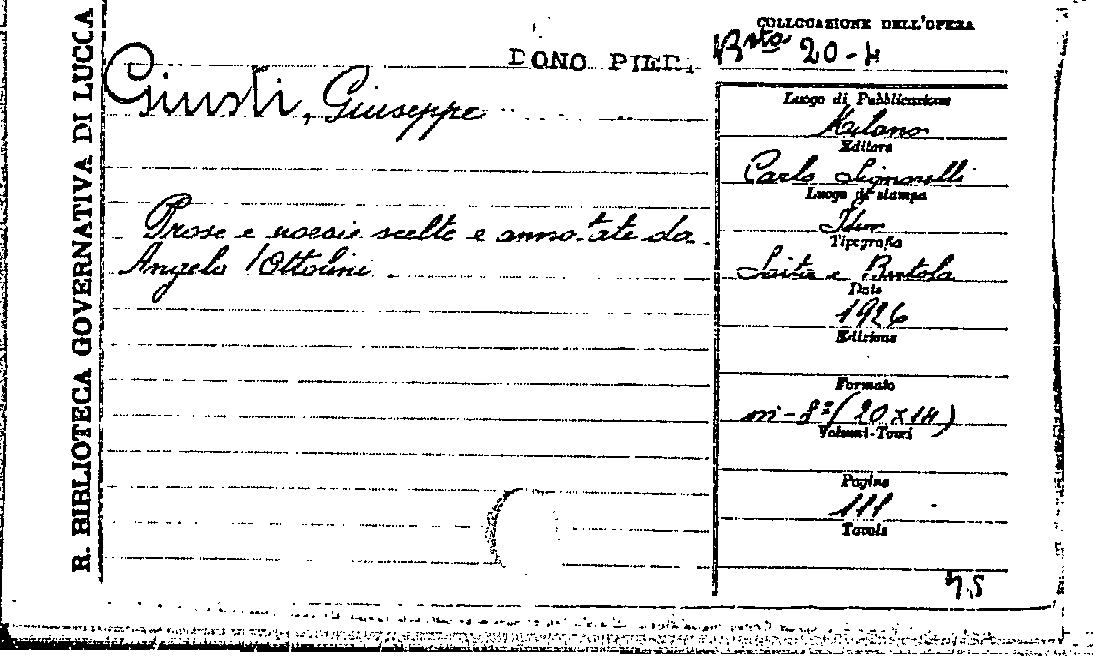 R. BIBLIOTECA GOVERNATIVA DI LUCCA
COLLOCAZIONE DELL'OPERA
DONO PIED.
Bsta 20-4
Giusti, Giuseppe
Luogo di Pubblicazione
Milano
Editore
Carlo Signorelli
Luogo di stampa
Idem
Tipografia
Prose e poesie scelte e annotate da
Angelo Ottolini
Saita e Bertola
Data
1926
Edizione
Formato
in-8º (20x14)
Volumi-Tomi
Pagine
111
Tavole